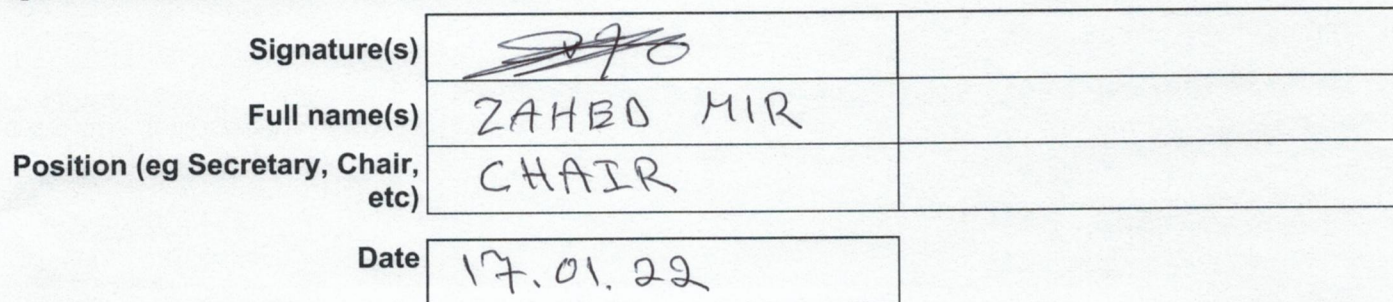 Signature(s)
Full name(s) ZAHED MIR
Position (eg Secretary, Chair, CHAIR
etc)
Date 17.01.22